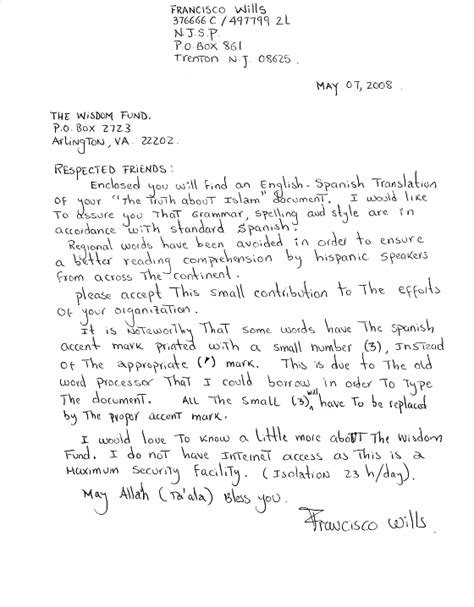 FRANCISCO Wills
376666 C / 497799 2L
N.J.S.P.
P.O. BOX 861
Trenton N.J. 08625.
MAY 07, 2008.
THE WISDOM FUND.
P.O. BOX 2723
ARLINGTON, VA. 22202.
RESPECTED FRIENDS:
Enclosed you will find an English-Spanish Translation
of your "The Truth about Islam" document. I would like
To assure you That Grammar, spelling and style are in
accordance with standard Spanish.
Regional words have been avoided in order to ensure
a better reading comprehension by hispanic speakers
from across The continent.
please accept This small contribution to The efforts
of your organization.
It is Noteworthy That some words have The Spanish
accent mark printed with a small number (3), instead
of The appropriate (′) mark. This is due to The old
word processor That I could borrow in order To Type
The document. All The small (3) will have To be replaced
by The proper accent mark.
I would love To know a little more about The Wisdom
Fund. I do not have Internet access as This is a
Maximum Security Facility. (Isolation 23 h/day).
May Allah (Ta'ala) Bless you.
Francisco Wills.